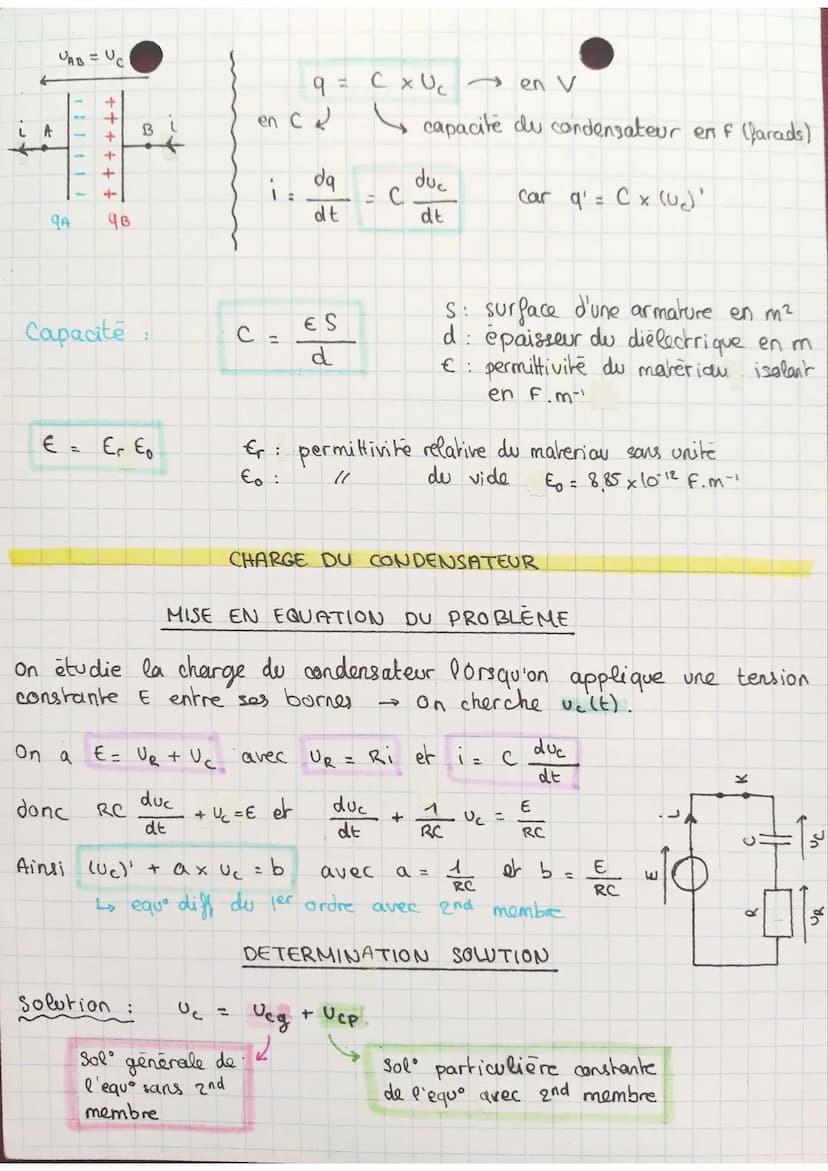 U_AB = U_C
i A - + B i
q_A q_B
q = C × U_c → en V
en C
capacité du condensateur en F (farads)
i = dq/dt = C du_c/dt car q' = C × (U_c)'
Capacité : C = ϵS/d
S : surface d'une armature en m²
d : épaisseur du diélectrique en m
ϵ : permittivité du matériau isolant
en F.m⁻¹
ϵ = ϵr ϵ₀
ϵr : permittivité relative du materiau sans unité
ϵ₀ : // du vide ϵ₀ = 8,85 × 10⁻¹² F.m⁻¹
CHARGE DU CONDENSATEUR
MISE EN EQUATION DU PROBLÈME
On étudie la charge du condensateur lorsqu'on applique une tension
constante E entre ses bornes → on cherche u_c(t).
On a E = U_R + U_c avec U_R = Ri et i = C du_c/dt
donc RC du_c/dt + U_c = E et du_c/dt + 1/RC U_c = E/RC
Ainsi (u_c)' + a × u_c = b avec a = 1/RC et b = E/RC
↳ equ° diff du 1er ordre avec 2nd membre
K
i
C
u_c
E
R
u_R
DETERMINATION SOLUTION
Solution : U_c = U_cg + U_cp
Sol° générale de
l'equ° sans 2nd
membre
Sol° particulière constante
de l'equ° avec 2nd membre